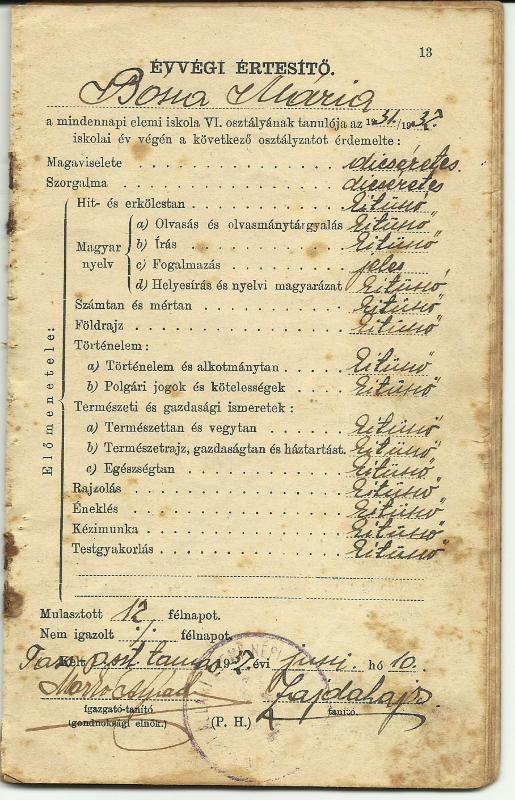 13
ÉVVÉGI ÉRTESÍTŐ.
Bosna Mária
a mindennapi elemi iskola VI. osztályának tanulója az 1931/1932.
iskolai év végén a következő osztályzatot érdemelte :
Magaviselete dicséretes.
Szorgalma dicséretes
Előmenetele:
Hit- és erkölcstan kitünő
Magyar nyelv
a) Olvasás és olvasmánytárgyalás kitünő
b) Írás kitünő
c) Fogalmazás jeles
d) Helyesírás és nyelvi magyarázat kitünő
Számtan és mértan kitünő
Földrajz kitünő
Történelem :
a) Történelem és alkotmánytan kitünő
b) Polgári jogok és kötelességek kitünő
Természeti és gazdasági ismeretek :
a) Természettan és vegytan kitünő
b) Természetrajz, gazdaságtan és háztartást. kitünő
c) Egészségtan kitünő
Rajzolás kitünő
Éneklés kitünő
Kézimunka kitünő
Testgyakorlás kitünő
Mulasztott 12 félnapot.
Nem igazolt félnapot.
Kelt 1932 évi juni. hó 10.
igazgató-tanító
(gondnoksági elnök.)
(P. H.)
tanító.